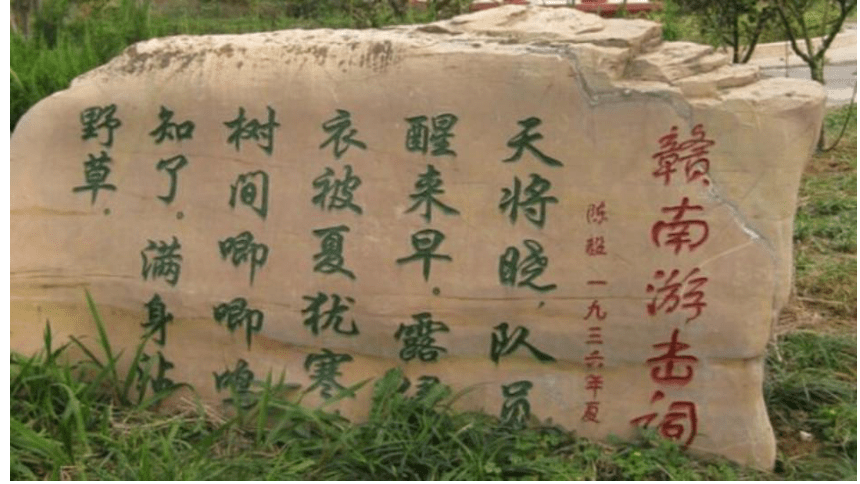 赣南游击词
陈毅 一九三六年夏
天将晓,队员
醒来早。露
衣被夏犹寒
树间唧唧鸣
知了。满身沾
野草。